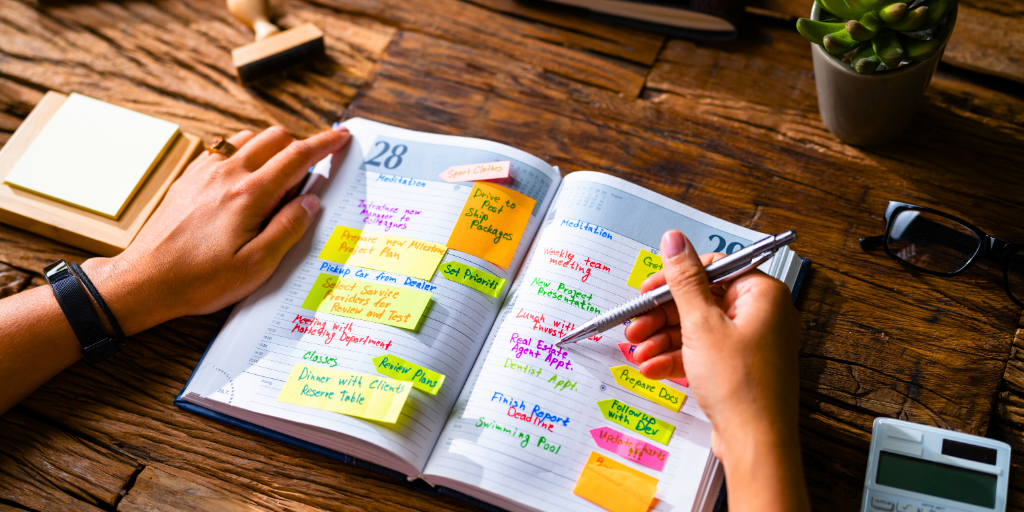 28
Meditation
Sport Clothes
Introduce new
Manager to
Colleagues
Drive to
Post
Ship
Packages
Prepare new Milestone
Project Plan
Set Prioriti
Pickup Car from Dealer
Select Service
Providers for
Review and Test
Meeting with
Marketing Department
Classes
Review Plans
Dinner with Clients
Reserve Table
Meditation
Weekly team
meeting
New Project
Presentation
Lunch with
Real Estate
Agent Appt.
Dentist Appt.
Prepare Docs
Finish Report
Deadline
Follow up
with Dev
Swimming Pool
Update Charts
!!!